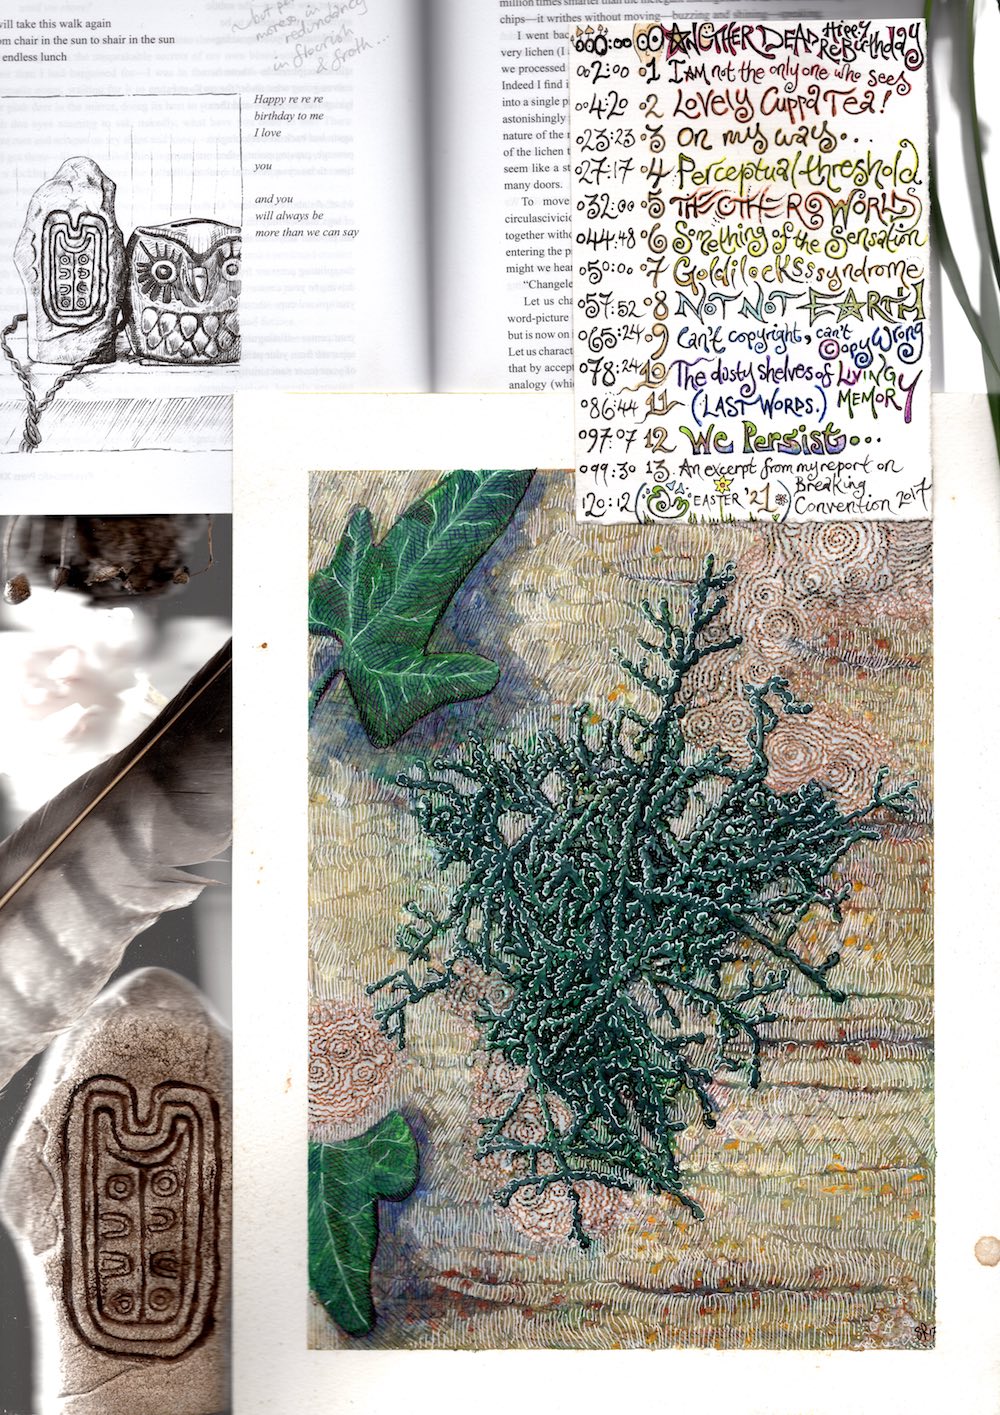 will take this walk again
from chair in the sun to shair in the sun
endless lunch
but per
more, in
redundancy
in flourish
& froth...
Happy re re re
birthday to me
I love
you
and you
will always be
more than we can say
million times smarter than the
chips—it writhes without moving—buzzing and
I went bac
very lichen (I
we processed
Indeed I find i
into a single p
astonishingly
nature of the r
of the lichen t
seem like a st
many doors.
To move
circulascivicio
together witho
entering the p
might we hear
"Changele
Let us cha
word-picture
but is now on i
Let us charact
that by accep
analogy (whic
000:00 00 ANOTHER DEAD ReBirthday
002:00 01 I AM not the only one who sees
004:20 02 Lovely Cuppa Tea!
023:23 03 On my way...
027:17 04 Perceptual threshold
032:00 05 THE OTHER WORLDS
044:48 06 Something of the Sensation
050:00 07 Goldilocksssyndrome
057:52 08 NOT NOT EARTH
065:24 09 Can't copyright, can't ©opy Wrong
078:24 10 The dusty shelves of LIVING MEMORY
086:44 11 (LAST WORDS.)
097:07 12 We Persist...
099:30 13. An excerpt from my report on Breaking Convention 2017
120:12 (EASTER '21)